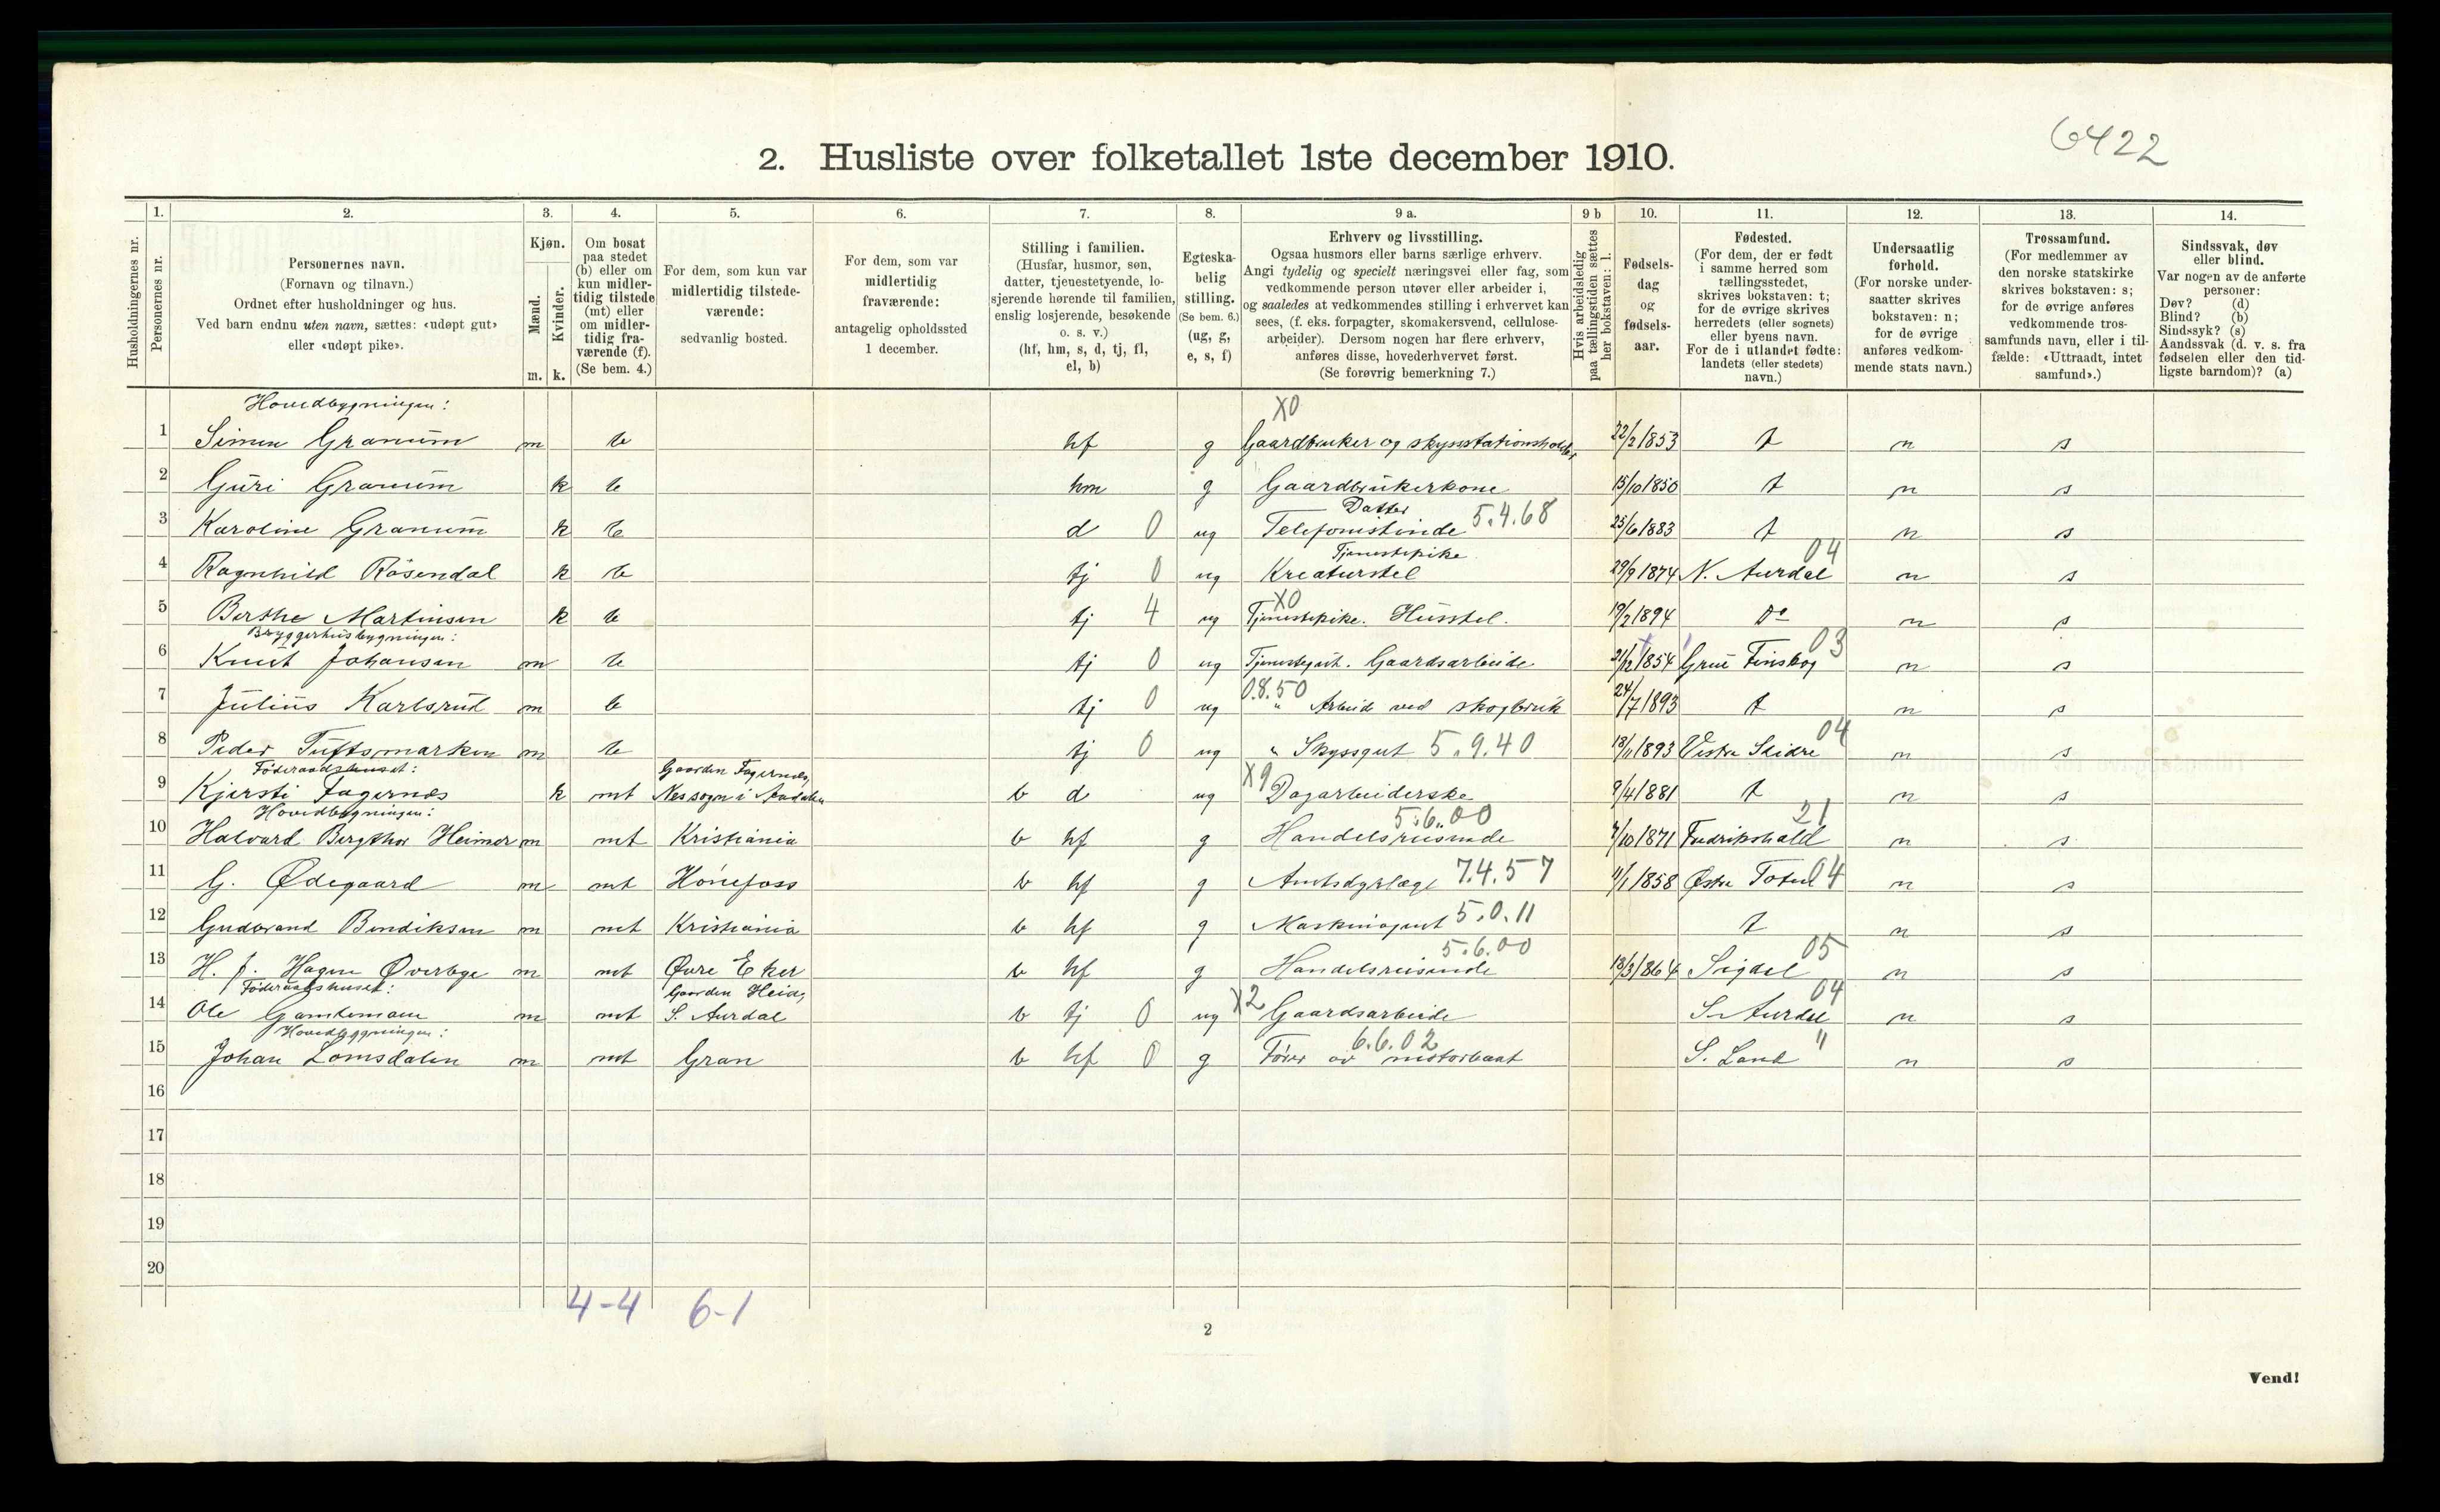 6422
2. Husliste over folketallet 1ste december 1910.
Husholdningernes nr.
1. Personernes nr.
2. Personernes navn.
(Fornavn og tilnavn.)
Ordnet efter husholdninger og hus.
Ved barn endnu uten navn, sættes: «udøpt gut»
eller «udøpt pike».
3. Kjøn.
Mænd. m.
Kvinder. k.
4. Om bosat
paa stedet
(b) eller om
kun midler-
tidig tilstede
(mt) eller
om midler-
tidig fra-
værende (f).
(Se bem. 4.)
5. For dem, som kun var
midlertidig tilstede-
værende:
sedvanlig bosted.
6. For dem, som var
midlertidig
fraværende:
antagelig opholdssted
1 december.
7. Stilling i familien.
(Husfar, husmor, søn,
datter, tjenestetyende, lo-
sjerende hørende til familien,
enslig losjerende, besøkende
o. s. v.)
(hf, hm, s, d, tj, fl,
el, b)
8. Egteska-
belig
stilling.
(Se bem. 6.)
(ug, g,
e, s, f)
9 a. Erhverv og livsstilling.
Ogsaa husmors eller barns særlige erhverv.
Angi tydelig og specielt næringsvei eller fag, som
vedkommende person utøver eller arbeider i,
og saaledes at vedkommendes stilling i erhvervet kan
sees, (f. eks. forpagter, skomakersvend, cellulose-
arbeider). Dersom nogen har flere erhverv,
anføres disse, hovederhvervet først.
(Se forøvrig bemerkning 7.)
9 b Hvis arbeidsledig
paa tællingstiden sættes
her bokstaven: l.
10. Fødsels-
dag
og
fødsels-
aar.
11. Fødested.
(For dem, der er født
i samme herred som
tællingsstedet,
skrives bokstaven: t;
for de øvrige skrives
herredets (eller sognets)
eller byens navn.
For de i utlandet fødte:
landets (eller stedets)
navn.)
12. Undersaatlig
forhold.
(For norske under-
saatter skrives
bokstaven: n;
for de øvrige
anføres vedkom-
mende stats navn.)
13. Trossamfund.
(For medlemmer av
den norske statskirke
skrives bokstaven: s;
for de øvrige anføres
vedkommende tros-
samfunds navn, eller i til-
fælde: «Uttraadt, intet
samfund».)
14. Sindssvak, døv
eller blind.
Var nogen av de anførte
personer:
Døv? (d)
Blind? (b)
Sindssyk? (s)
Aandssvak (d. v. s. fra
fødselen eller den tid-
ligste barndom)? (a)
Hovedbygningen: X0
1 Simen Granum m b hf g Gaardbruker og skysstationsholder 22/2 1853 t n s
2 Guri Granum k b hm g Gaardbrukerkone 15/10 1850 t n s
Datter
3 Karoline Granum k b d 0 ug Telefonistinde 5.4.68 25/6 1883 t n s
Tjenestepike 04
4 Ragnhild Rosendal k b tj 0 ug Kreaturstel 29/9 1874 N. Aurdal n s
X0
5 Berthe Martinsen k b tj 4 ug Tjenestepike. Husstel. 19/2 1894 Do n s
Bryggerhusbygningen: 03
6 Knut Johansen m b tj 0 ug Tjenestegut. Gaardsarbeide 21/12 1854 Grue Finskog n s
0.8.50
7 Julius Karlsrud m b tj 0 ug " Arbeide ved skogbruk 24/7 1893 t n s
04
8 Peder Tuftsmarken m b tj 0 ug " Skyssgut 5.9.40 18/11 1893 Vestre Slidre n s
Föderaadshuset: Gaarden Fagernes, X9
9 Kjersti Fagernes k mt Nes sogn i Aadalen b d ug Dagarbeiderske 9/4 1881 t n s
Hovedbygningen: 5.6.00 21
10 Halvard Bergthor Heimer m mt Kristiania b hf g Handelsreisende 7/10 1871 Fredrikshald n s
11 G. Ødegaard m mt Hönefoss b hf g Amtsdyrlæge 7.4.57 11/1 1858 Østre Toten 04 n s
12 Gudbrand Bendiksen m mt Kristiania b hf g Maskinagent 5.0.11 t n s
5.6.00 05
13 H. J. Hagen Överbye m mt Øvre Eker b hf g Handelsreisende 18/3 1864 Sigdal n s
Föderaadshuset: Gaarden Heia, X2 04
14 Ole m mt S. Aurdal b tj 0 ug Gaardsarbeide S. Aurdal n s
Hovedbygningen: 6.6.02 "
15 Johan Lomsdalen m mt Gran b hf 0 g Fører av motorbaat S. Land n s
16
17
18
19
20
4-4 6-1
2
Vend!